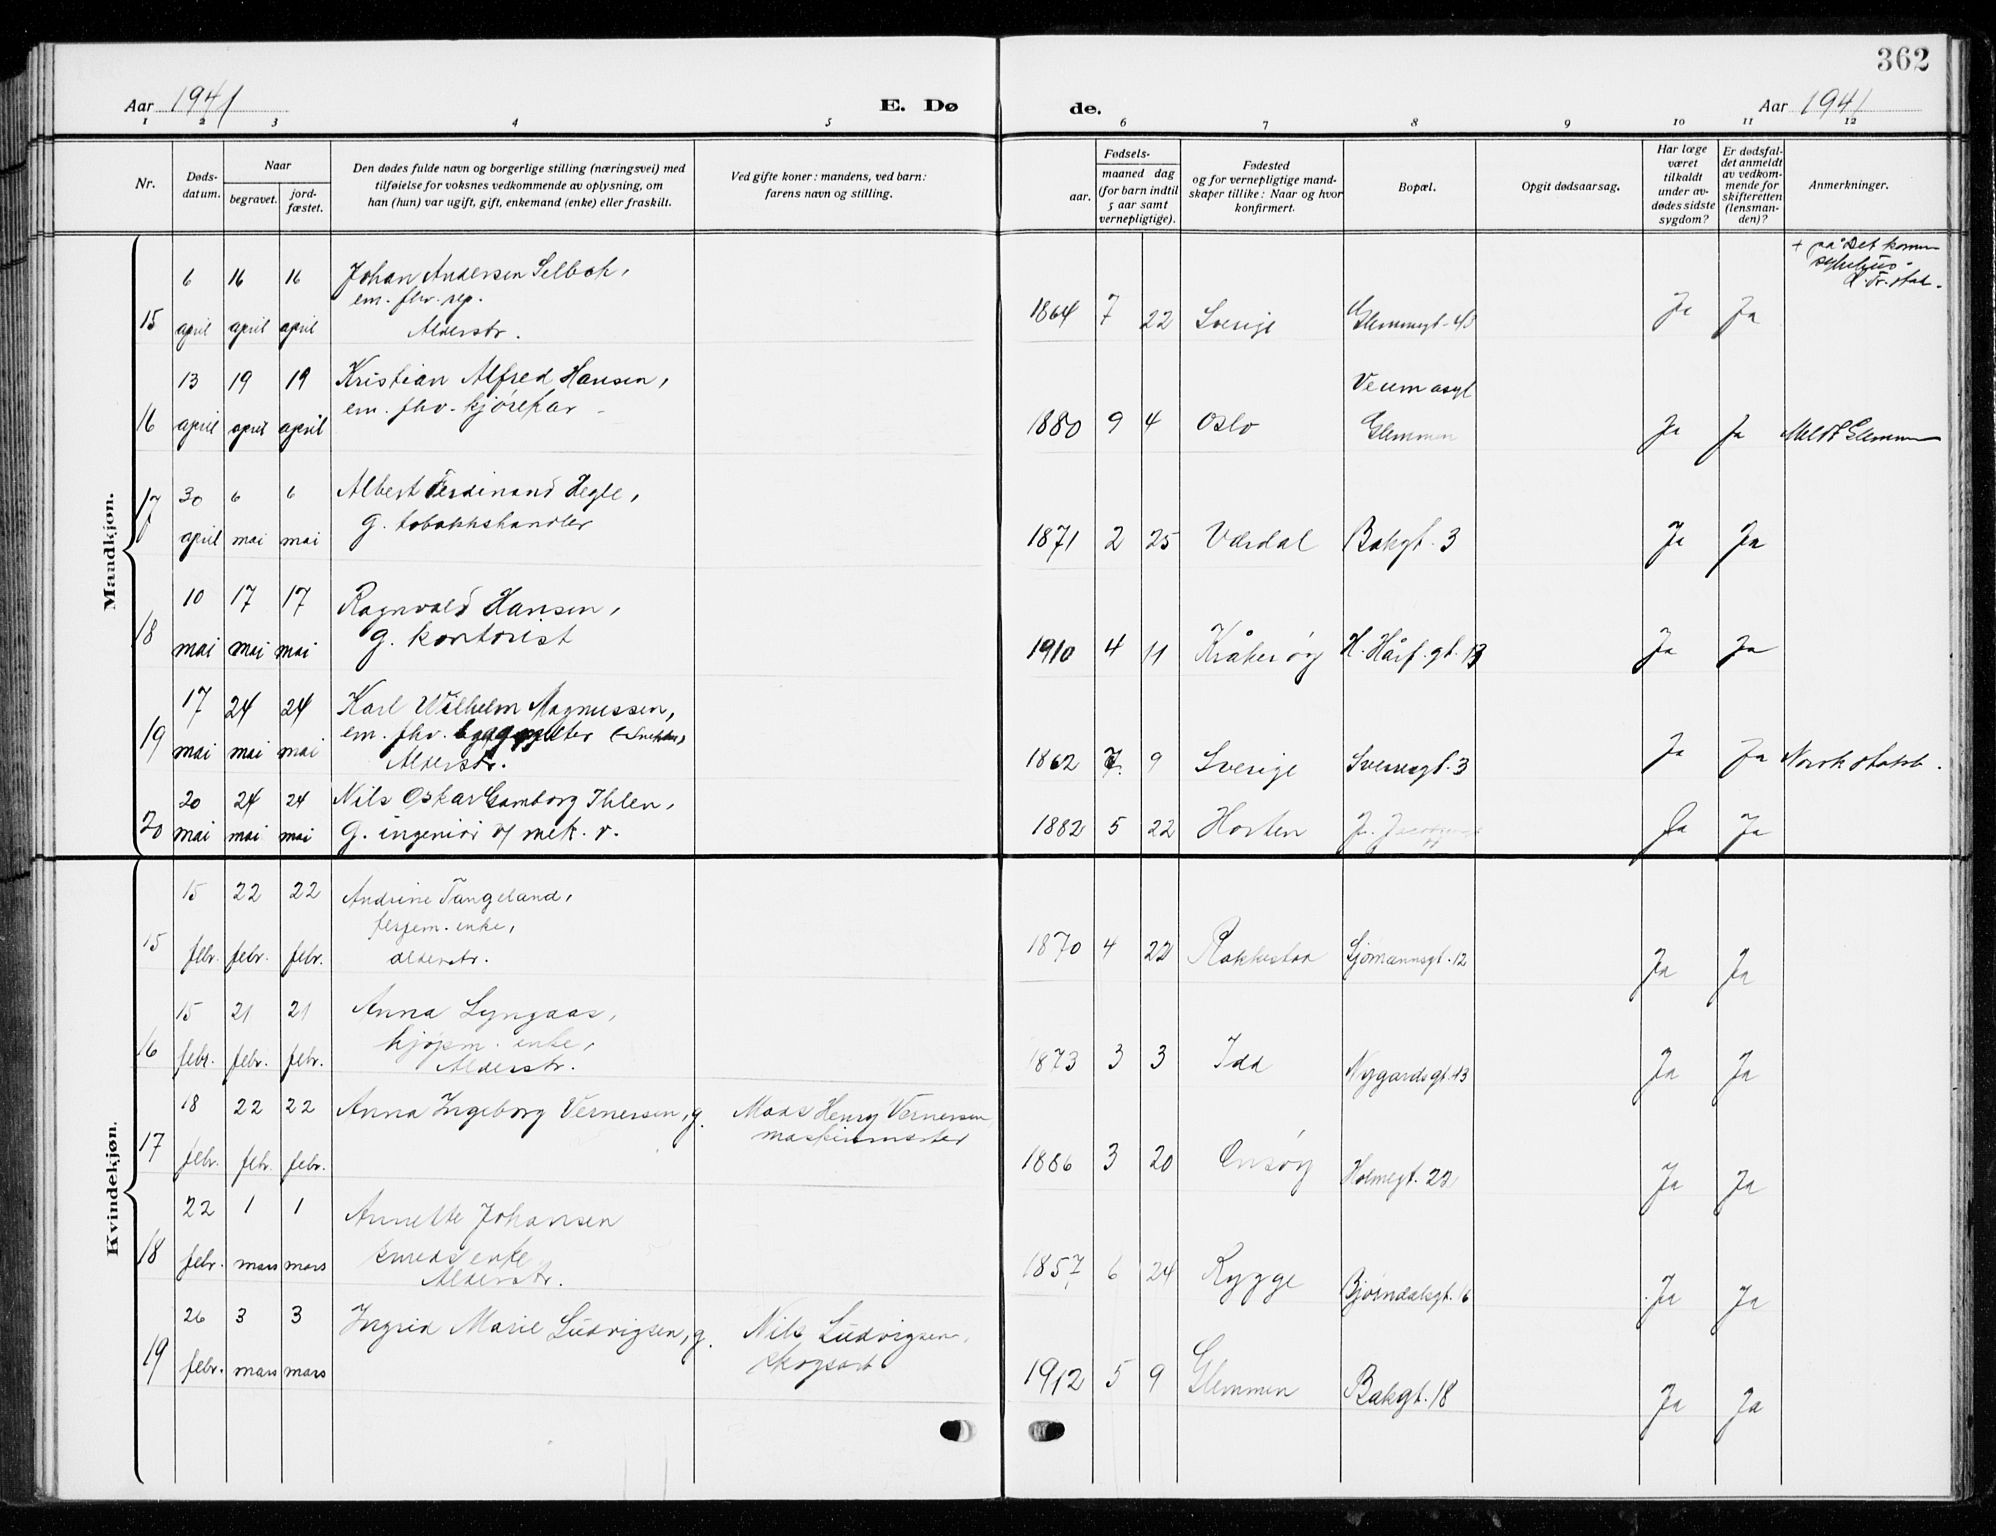 362
Aar 1941
E. Dø
de.
Aar 1941
1 2 3 4 5 6 7 8 9 10 11 12
Nr.
Døds-
datum.
Naar
begravet.
jord-
fæstet.
Den dødes fulde navn og borgerlige stilling (næringsvei) med
tilføielse for voksnes vedkommende av oplysning, om
han (hun) var ugift, gift, enkemand (enke) eller fraskilt.
Ved gifte koner: mandens, ved barn:
farens navn og stilling.
Fødsels-
aar.
maaned dag
(for barn indtil
5 aar samt
vernepligtige).
Fødested
og for vernepligtige mand-
skaper tillike: Naar og hvor
konfirmert.
Bopæl.
Opgit dødsaarsag.
Har læge
været
tilkaldt
under av-
dødes sidste
sygdom?
Er dødsfal-
det anmeldt
av vedkom-
mende for
skifteretten
(lensman-
den)?
Anmerkninger.
Mandkjøn.
15
6 april
16 april
16 april
Johan Andersen Selbak,
em. fhv. rep.
Alderstr.
1864 7 22 Sverige
Glemmegt.
Ja Ja
+ på Det komm
sykehus
16
13 april
19 april
19 april
Kristian Alfred Hansen,
em. fhv. kjørekar
1880 9 4 Oslo
Veum asyl
Glemmen
Ja Ja
Meldt Glemmen
17
30 april
6 mai
6 mai
Albert Ferdinand Hegle,
g. tobakkshandler
1871 2 25 Værdal Bakgt. 3 Ja Ja
18
10 mai
17 mai
17 mai
Ragnvald Hansen,
g. kontorist
1910 4 11 Kråkerøy H. Hårf. gt. 13 Ja Ja
19
17 mai
24 mai
24 mai
Karl Wilhelm Magnussen,
em. fhv. (Snekker)
Alderstr.
1862 7 9 Sverige Sverresgt. 3 Ja Ja Norsk statsb.
20
20 mai
24 mai
24 mai
Nils Oskar Gamborg Ihlen,
g. ingeniør v/ mek. v.
1882 5 22 Horten Ja Ja
Kvindekjøn.
15
15 febr.
22 febr.
22 febr.
Andrine Tangeland,
enke,
alderstr.
1870 4 22 Rakkestad Sjømannsgt. 12 Ja Ja
16
15 febr.
21 febr.
21 febr.
Anna Lyngaas,
kjøpm. enke,
Alderstr.
1873 3 3 Idd Nygardsgt. 43 Ja Ja
17
18 febr.
22 febr.
22 febr.
Anna Ingeborg Vernersen, g.
Maas Henry Vernersen
maskinmester
1886 3 20 Onsøy Holmegt. 22 Ja Ja
18
22 febr.
1 mars
1 mars
Annette Johansen
smeds enke
Alderstr.
1857 6 24 Rygge Bjørndalsgt. 16 Ja Ja
19
26 febr.
3 mars
3 mars
Ingrid Marie Ludvigsen, g.
Nils Ludvigsen,
skogsarb
1912 5 9 Glemmen Bakgt. 18 Ja Ja